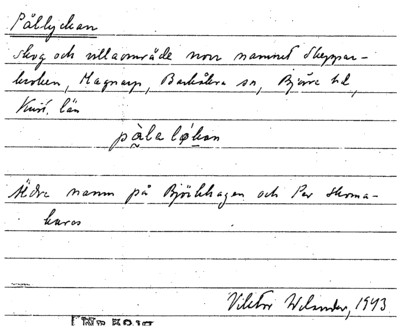 Pållyckan
Skog och villaområde norr namnet Skeppar-
kroken, Magnarp, Barkåkra sn, Bjäre hd,
Krist. län
pålaløkan
Äldre namn på Björkhagen och Per Skoma-
kares
Viktor Wilander, 1943